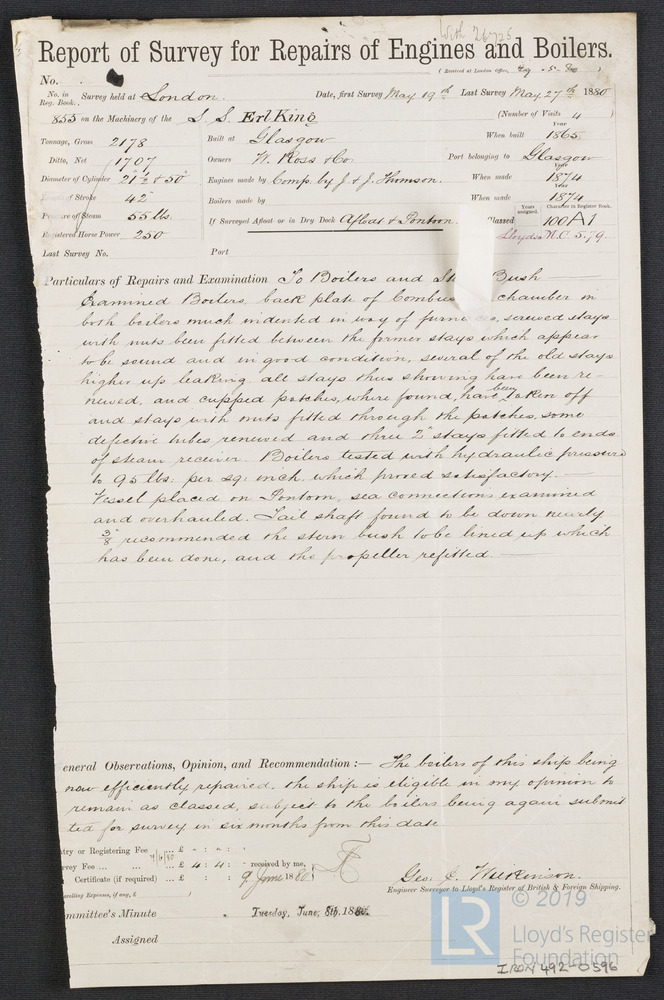 With 26725
Report of Survey for Repairs of Engines and Boilers.
(Received at London Office,
No.
No. in Reg. Book. Survey held at London. Date, first Survey May 19th Last Survey May 27th 1880
855 on the Machinery of the S.S. Erl King (Number of Visits 4)
Tonnage, Gross 2178 Built at Glasgow When built Year 1865
Ditto, Net 1707 Owners W. Ross & Co. Port belonging to Glasgow
Diameter of Cylinder 21½ & 50" Engines made by Comp. by J. & J. Thomson. When made Year 1874
of Stroke 42" Boilers made by When made Year 1874
Pressure of Steam 55 lbs. If Surveyed Afloat or in Dry Dock Afloat & Pontoon. Years assigned. Character in Register Book. Classed 100A1
Registered Horse Power 250 Lloyds M.C. 5.79.
Last Survey No. Port
Particulars of Repairs and Examination To Boilers and Bush
Examined Boilers, back plate of Combus chamber in
both boilers much indented in way of furnaces, screwed stays
with nuts been fitted between the former stays which appear
to be sound and in good condition, several of the old stays
higher up leaking. all stays thus showing have been re-
newed, and cupped patches, where found, have been taken off
and stays with nuts fitted through the patches, some
defective tubes renewed and three 2" stays fitted to ends
of steam receiver. Boilers tested with hydraulic pressure
to 95 lbs: per sq: inch, which proved satisfactory.
Vessel placed on Pontoon, sea connections examined
and overhauled. Tail shaft found to be down nearly
3/8" recommended the stern bush to be lined up which
has been done, and the propeller refitted.
eneral Observations, Opinion, and Recommendation :— The boilers of this ship being
now efficiently repaired, the ship is eligible in my opinion to
remain as classed, subject to the boilers being again submit
ted for survey in six months from this date
ntry or Registering Fee £ : :
rvey Fee ... £ 4 : 4 : received by me,
Certificate (if required) ... £ : : 9 June 1880
avelling Expenses, if any, £
Geo. C. Wilkinson.
Engineer Surveyor to Lloyd's Register of British & Foreign Shipping.
mmittee's Minute Tuesday, June, 8th, 1880.
Assigned
LR
© 2019
Lloyd's Register
Foundation
IRON 492-0596